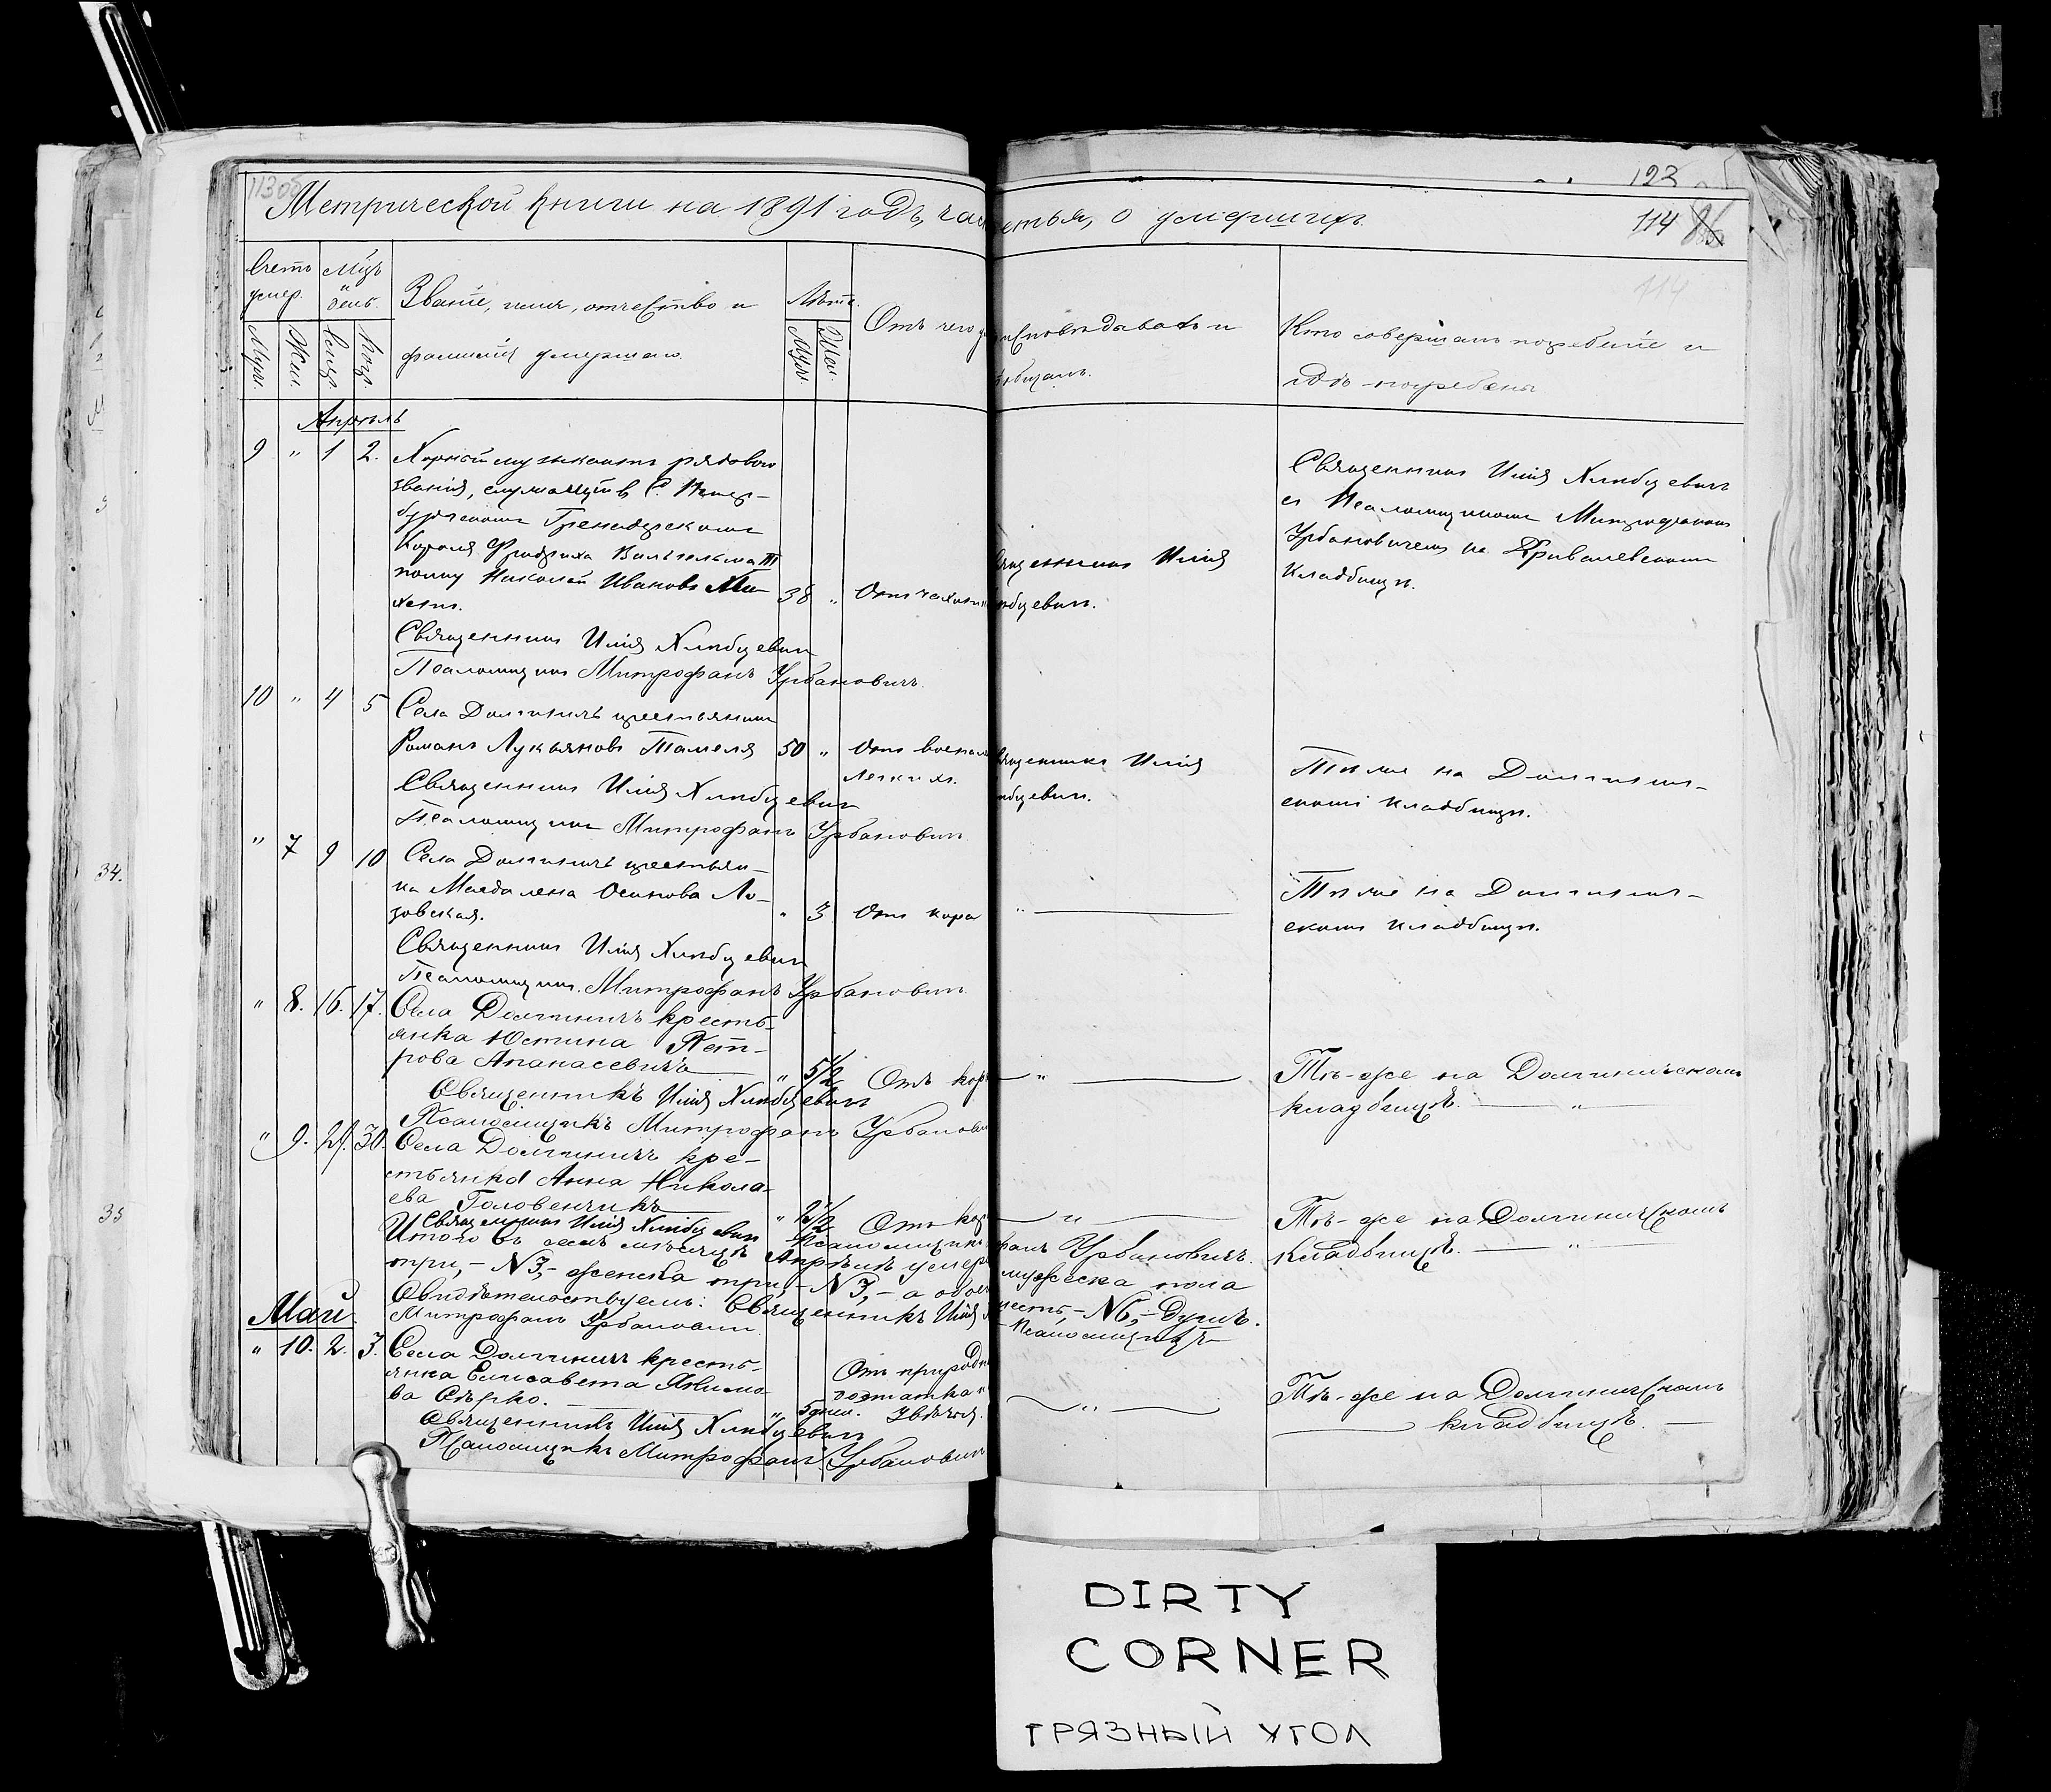 123
113об
114
Метрической книги на 1891 годъ, час етья, о умершихъ.
114
Счетъ умер.
Мѣсяц и день.
Званіе, имя, отчество и
фамилія умершаго.
Лѣта.
Отъ чего
исповѣдывалъ и
Кто совершалъ погребеніе и
гдѣ погребены
Муж.
Жен.
Муж.
Жен.
Апрѣль
9 " 1 2.
званія,
Гренадерскаго
Короля Фридриха Вильгельма III
полку Николай Ивановъ Ми-
38 "
Отъ чахотки
Священникъ Илія
Священникъ Илія Хлибцевичъ
съ Псаломщикомъ Митрофаномъ
Урбановичемъ на
кладбищѣ.
Священникъ Илія Хлибцевичъ
Псаломщикъ Митрофанъ Урбановичъ.
10 " 4 5
Села Долгиничъ крестьянинъ
Романъ Лукьяновъ Тамеля 50 "
Отъ воспал
легкихъ.
Священникъ Илія
бцевич.
Тѣ же на Долгинич-
скомъ кладбищѣ.
Священникъ Илія Хлибцевичъ
Псаломщикъ Митрофанъ Урбановичъ
" 7 9 10
Села Долгиничъ крестьян-
ка Магдалена Осипова Ло-
зовская. " 3 Отъ кори
" —
Тѣ же на Долгинич-
скомъ кладбищѣ.
Священникъ Илія Хлибцевичъ
Псаломщикъ Митрофанъ Урбановичъ
" 8. 16. 17.
Села Долгиничъ кресть-
янка Юстина Пет-
рова Апанасевичъ " 5½ Отъ кор
— " —
Тѣ-же на Долгиничскомъ
кладбищѣ. — " —
Священникъ Илія Хлибцевичъ
Псаломщикъ Митрофанъ Урбанови
" 9. 29. 30.
Села Долгиничъ кре-
стьянка Анна Никола-
ева Головенчикъ " 2½ Отъ кор
— " —
Тѣ-же на Долгиничскомъ
кладбищѣ. — " —
Священникъ Илія Хлибцевич Псаломщикъ фанъ Урбановичъ.
Итого въ семъ мѣсяцѣ Апрѣлѣ умер мужеска пола
три,- N3,- женска три,- N3,- а обое шесть,- N6,- душъ.
Свидѣтельствуемъ: Священникъ Илія Псаломщикъ
Митрофанъ Урбановичъ
Май.
" 10. 2. 3.
Села Долгиничъ кресть-
янка Елисавета Якимо-
ва Сѣрко. — " 5 дней.
Отъ природн
— " —
Тѣ-же на Долгиничскомъ
— кладбищѣ. —
Священникъ Илія Хлибцевичъ
Псаломщикъ Митрофанъ Урбановичъ
34.
35
DIRTY
CORNER
ГРЯЗНЫЙ УГОЛ